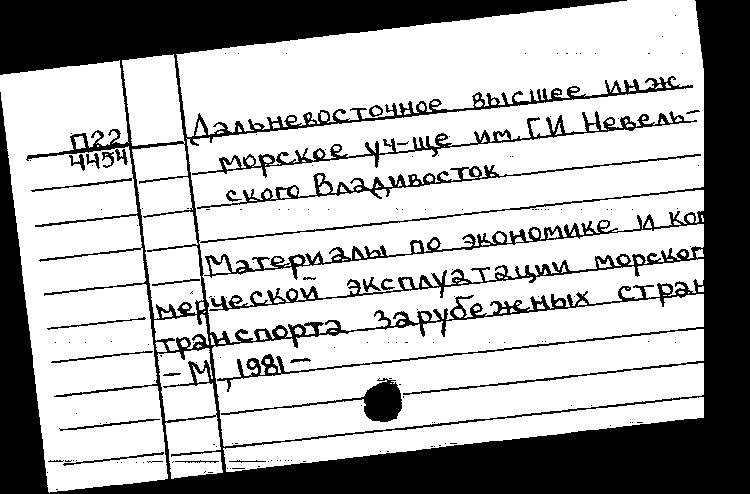 П22
4454
Дальневосточное высшее инж
морское уч-ще им. Г.И Невель-
ского Владивосток
Материалы по экономике и ком
мерческой эксплуатации морског
транспорта зарубежных стран
- М, 1981 -